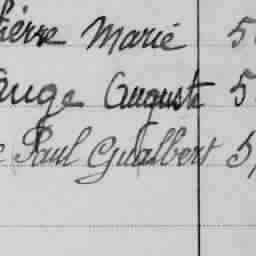 Pierre Marie 5
Ange Auguste 5
Paul Gualbert 5,